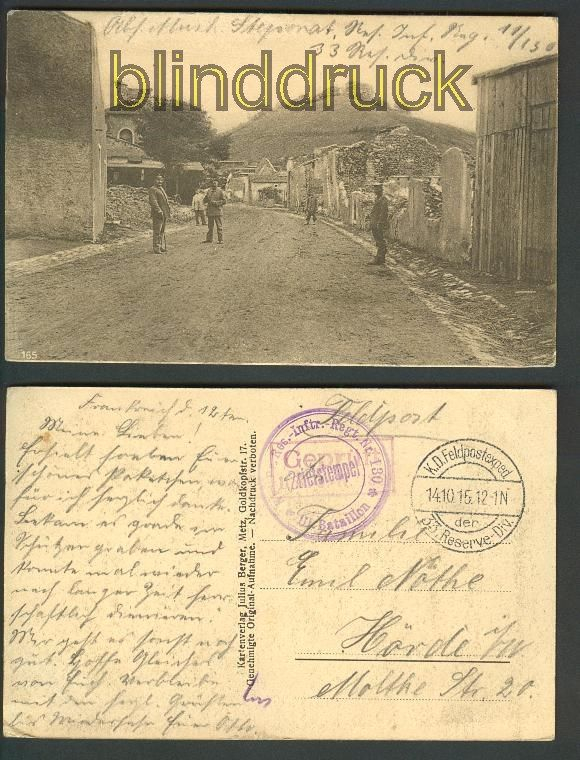 Abs. Musk. Stepponat, Res. Inf. Reg. 11/130
33 Res. Div.
blinddruck
165
Frankreich d. 12ten.
Meine Lieben!
Erhielt soeben Euer
schönes Paketchen wo
für ich herzlich danke
Bekam es grade im
Schützengraben und
konnte mal wieder
nach langer Zeit herr
schaftlich dinnieren.
Mir geht es sonst noch
gut. Hoffe Gleiches
von Euch Verbleibe
mit den herzl. Grüßen
bis Wiedersehn Euer Otto.
Kartenverlag Julius Berger, Metz, Goldkopfstr. 17.
Genehmigte Original-Aufnahme. — Nachdruck verboten.
Feldpost
Res.-Inftr.-Regt. Nr. 130
Geprüft
Bataillon
K.D. Feldpostexped.
14.10.15.12-1N
der
33. Reserve. Div.
Familie
Emil Nöthe
Hörde i/W
Moltke Str. 20.